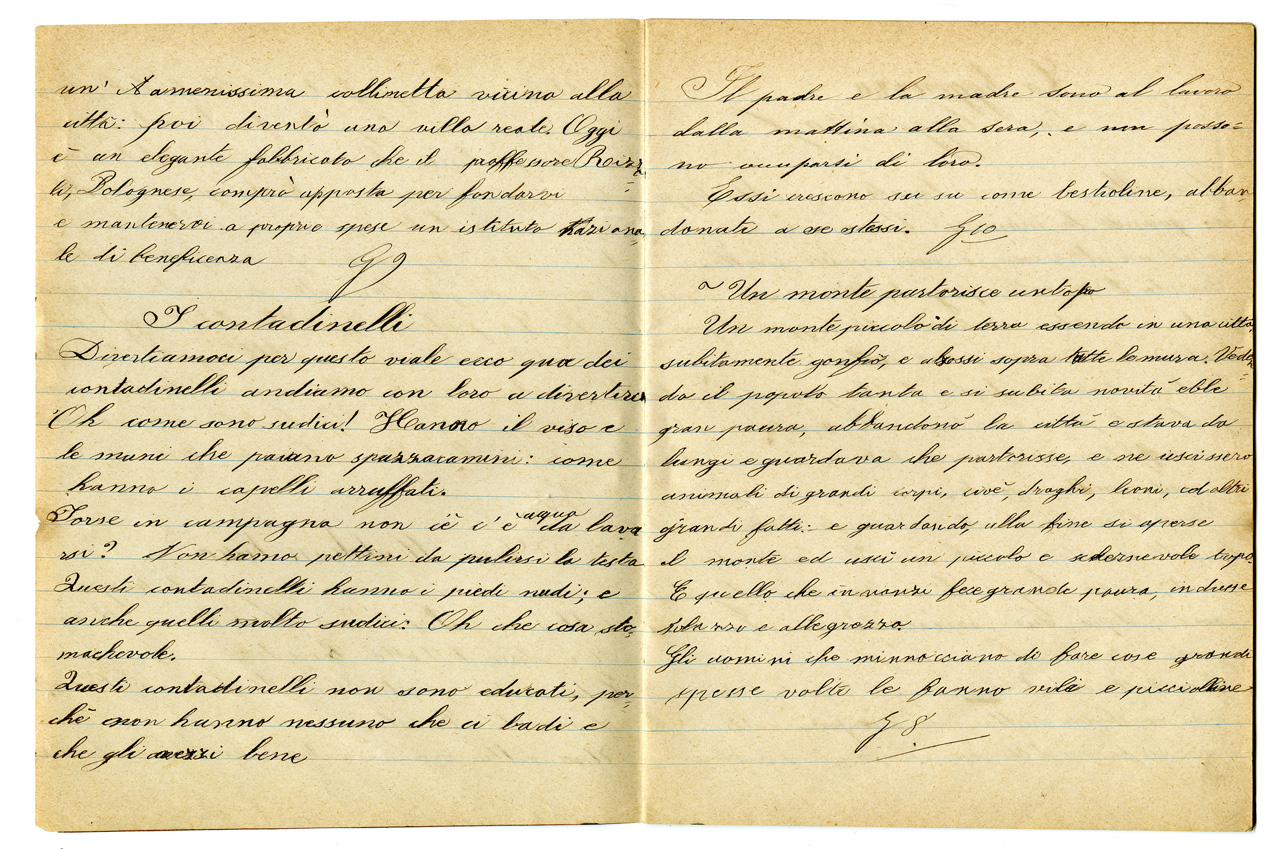 un' Aamenissima collinetta vicino alla
città: poi diventò una villa reale. Oggi
è un elegante fabbricato che il professore Rizz-
li, Bolognese, comprò apposta per fondarvi
e mantenervi a proprie spese un istituto naziona-
le di beneficenza G 9
I contadinelli
Divertiamoci per questo viale ecco qua dei
contadinelli andiamo con loro a divertirci
Oh come sono sudici! Hanno il viso e
le mani che paiano spazzacamini: come
hanno i capelli arruffati.
Forse in campagna non c'è acqua da lava
rsi? Non hanno pettini da pulirsi la testa
Questi contadinelli hanno i piedi nudi; e
anche quelli molto sudici: Oh che cosa sto-
machevole.
Questi contadinelli non sono educati, per-
chè non hanno nessuno che ci badi e
che gli avezzi bene
Il padre e la madre sono al lavoro
dalla mattina alla sera, e non posso-
no occuparsi di loro.
Essi crescono su su come bestioline, abban-
donati a se stessi. G 10
Un monte partorisce un topo
Un monte piccolo di terra essendo in una città,
subitamente gonfiò, e alzossi sopra tutte le mura. Veden-
do il popolo tanta e sì subita novità ebbe
gran paura, abbandonò la città e stava da
lungi e guardava che partorisse, e ne uscissero
animali di grandi corpi, cioè, draghi, leoni, ed altri
grandi fatti: e guardando, alla fine si aperse
il monte ed uscì un piccolo e schernevole topo.
E quello che innanzi fece grande paura, indusse
solazzo e allegrezza.
Gli uomini che minnacciano di fare cose grandi
spesse volte le fanno vili e piccioline
G 8.